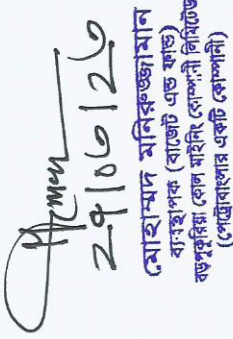 ২৭/০৬/২৬
মোহাম্মদ মনিরুজ্জামান
ব্যবস্থাপক (বাজেট এন্ড ফান্ড)
বড়পুকুরিয়া কোল মাইনিং কোম্পানী লিমিটেড
(পেট্রোবাংলার একটি কোম্পানী)